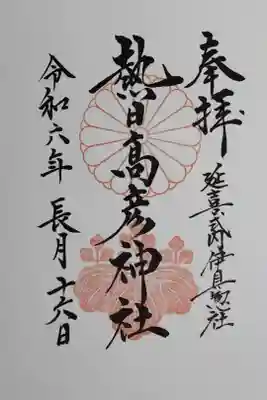 奉拝
延喜式伊具惣社
熱日高彦神社
令和六年 長月十六日